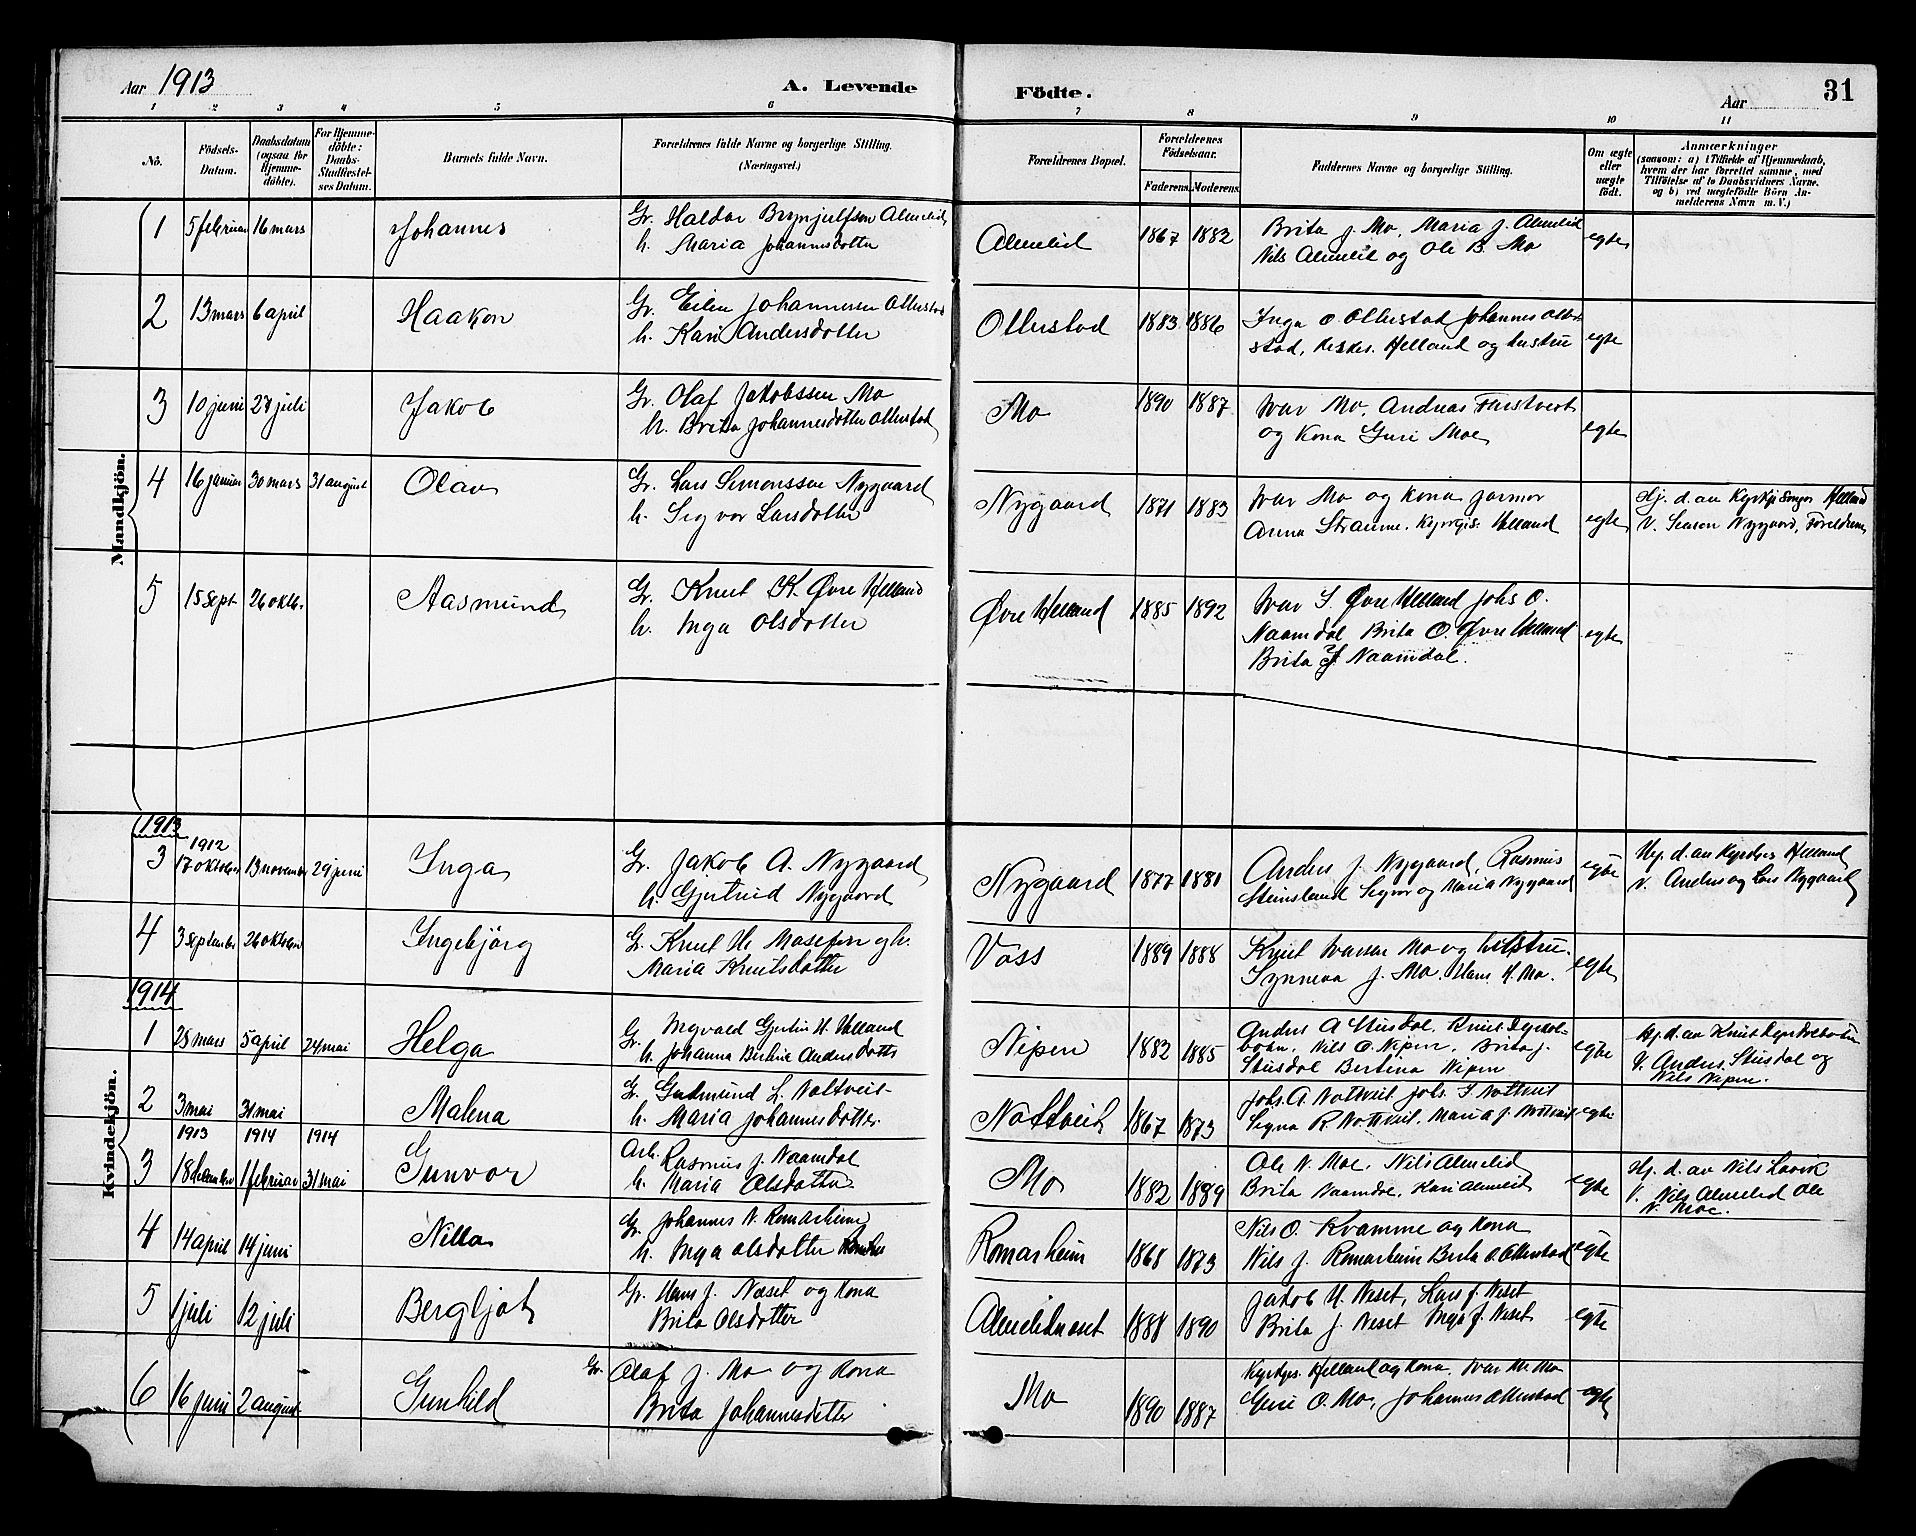 Aar 1913
A. Levende Födte.
Aar
31
1 2 3 4 5 6 7 8 9 10 11
No.
Födsels-
Datum.
Daabsdatum
(ogsaa for
Hjemme-
döbte).
For Hjemme-
döbte:
Daabs-
Stadfæstel-
ses Datum.
Barnets fulde Navn.
Forældrenes fulde Navne og borgerlige Stilling.
(Næringsvei.)
Forældrenes Bopæl.
Forældrenes
Födselsaar.
Faderens. Moderens.
Faddernes Navne og borgerlige Stilling.
Om ægte
eller
uægte
födt.
Anmærkninger
(saasom: a) i Tilfælde af Hjemmedaab,
hvem der har forrettet samme, med
Tilföielse af to Daabsvidners Navne.
og b) ved uægtefödte Börn An-
melderens Navn m. V.)
Mandkjön.
1 5 februar 16 mars Johannes
Gr. Haldor Brynjulfsen Almelid
h. Maria Johannesdotter
Almelid 1867 1882
Brita J. Mo, Maria J. Almelid
Nils Almelid og Ole B. Mo
egte
2 13 mars 6 april Haakon
Gr. Johannessen Ollestad
h. Kari Andersdotter
Ollestad 1883 1886
Inga O. Ollestad Johannes Olle-
stad, Helland og hustru
egte
3 10 juni 27 juli Jakob
Gr. Olaf Jakobssen Mo
h. Brita Johannesdotter Ollestad
Mo 1890 1887
Ivar Mo, Andreas
og kona Guri Moe
egte
4 16 januar 30 mars 31 august Olav
Gr. Lars Simonssen Nygaard
h. Sigvor Larsdotter
Nygaard 1871 1883
Ivar Mo og kona
Anna Straume. Helland
egte
Hj. d. av Kyrkjesongar Helland
V. Nygaard, Foreldrene
5 15 sept 26 oktbr. Aasmund
Gr. Knut K. Øvre Helland
h. Inga Olsdotter
Øvre Helland 1885 1892
Ivar S. Øvre Helland Johs O.
Naamdal Brita O. Øvre Helland
Brita J. Naamdal.
egte
Kvindekjön.
1913
1912
3 17 oktober 13 november 29 juni Inga
Gr. Jakob A. Nygaard
h. Gjertrud Nygaard
Nygaard 1877 1881
Anders J. Nygaard, Rasmus
Steinsland Sigvor og Maria Nygaard
egte
Hj. d. av Kyrkjes. Helland
V. Anders og Lars Nygaard
4 3 september 26 oktober Ingebjörg
G. Knut H. og h.
Maria Knutsdotter
Voss 1889 1888
Knut Ivarsen Mo og hustru
Synneva J. Mo. Hans H. Mo.
egte
1914
1 25 mars 5 april 24 mai Helga
Gr. Ingvald Gjertin H. Helland
h. Johanna Bertine Andersdotter
Nipen 1882 1885
Anders A Stusdal. Knut
Nils O. Nipen. Brita J.
Stusdal Bertina Nipen
egte
Hj. d. av Knut
V. Anders Stusdal og
Nils Nipen.
2 3 mai 31 mai Malena
G. Gudmund L. Nottveit
h. Maria Johannesdotter
Nottveit 1867 1873
Johs. A. Nottveit Johs. I. Nottveit
Signa R. Nottveit. Maria J. Nottveit
egte
1913 1914 1914
3 18 desember 1 februar 31 mai Gunvor
Arb. Rasmus J. Naamdal
h. Maria Olsdotter
Mo 1882 1889
Ole N. Moe. Nils Almelid
Brita Naamdal. Kari Almelid
egte
Hj. d. av Nils Lavik
V. Nils Almelid Ole
N. Moe.
4 14 april 14 juni Nilla
Gr. Johannes N. Romarheim
h. Inga Olsdotter
Romarheim 1868 1873
Nils O. Kvamme og kona
Nils J. Romarheim Brita O. Ollestad
egte
5 1 juli 12 juli Bergljot
Gr. Hans J. Neset og kona
Brita Olsdotter
Almelidneset 1888 1890
Jakob H. Neset, Lars J. Neset
Brita J. Neset Inga J. Neset
egte
6 16 juni 2 august Gunhild
Gr. Olaf J. Mo og kona
Brita Johannesdotter
Mo 1890 1887
Kyrkjes. Helland og kona. Ivar Mo
Guri O. Mo, Johannes Ollestad
egte